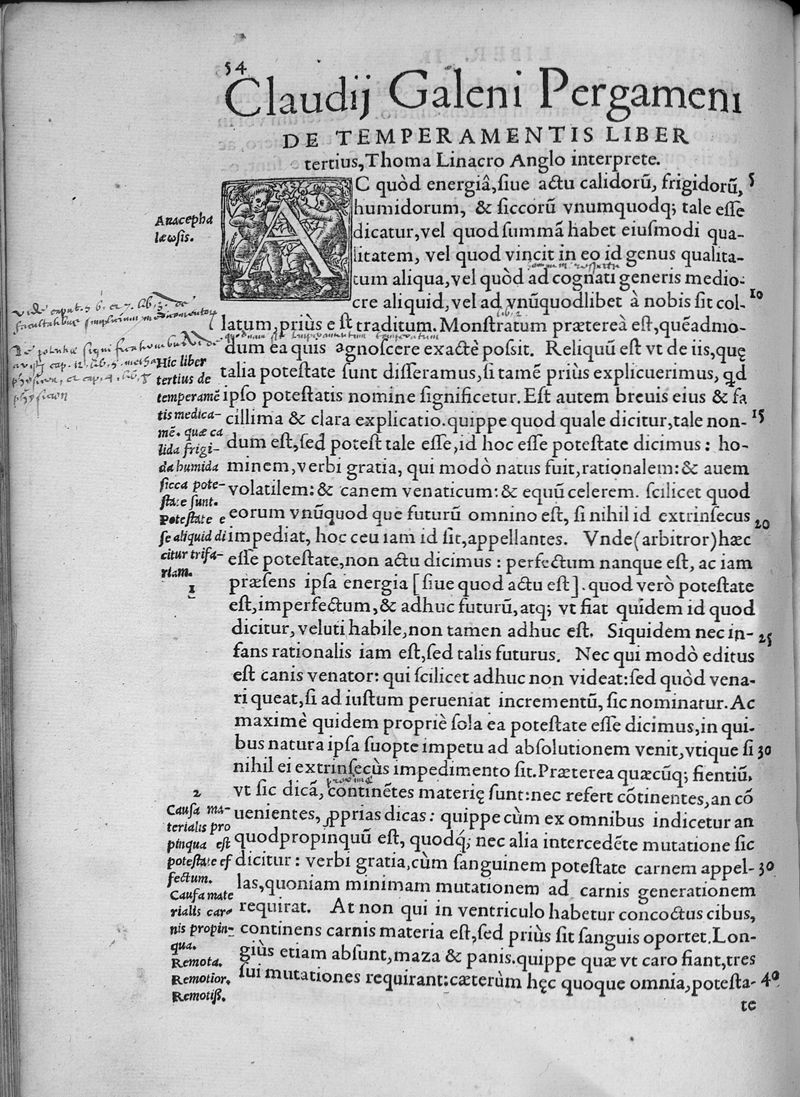 54
Claudij Galeni Pergameni
DE TEMPERAMENTIS LIBER
tertius, Thoma Linacro Anglo interprete.
AC quòd energiâ, siue actu calidorũ, frigidorũ, 5
humidorum, & siccorũ vnumquodq; tale esse
dicatur, vel quod summã habet eiusmodi qua-
litatem, vel quod vincit in eo id genus qualita-
tum aliqua, vel quòd ad cognati generis medio-
cre aliquid, vel ad vnũquodlibet à nobis sit col- 10
latum, priùs est traditum. Monstratum præterea est, quẽadmo-
dum ea quis agnoscere exactè possit. Reliquũ est vt de iis, quę
talia potestate sunt disseramus, si tamẽ priùs explicuerimus, qd
ipso potestatis nomine significetur. Est autem breuis eius & fa
cillima & clara explicatio. quippe quod quale dicitur, tale non- 15
dum est, sed potest tale esse, id hoc esse potestate dicimus: ho-
minem, verbi gratia, qui modò natus fuit, rationalem: & auem
volatilem: & canem venaticum: & equũ celerem. scilicet quod
eorum vnũquod que futurũ omnino est, si nihil id extrinsecus 20
impediat, hoc ceu iam id sit, appellantes. Vnde (arbitror) hæc
esse potestate, non actu dicimus: perfectum nanque est, ac iam
præsens ipsa energia [siue quod actu est]. quod verò potestate
est, imperfectum, & adhuc futurũ, atq; vt fiat quidem id quod
dicitur, veluti habile, non tamen adhuc est. Siquidem nec in- 25
fans rationalis iam est, sed talis futurus. Nec qui modò editus
est canis venator: qui scilicet adhuc non videat: sed quòd vena-
ri queat, si ad iustum perueniat incrementũ, sic nominatur. Ac
maximè quidem propriè sola ea potestate esse dicimus, in qui-
bus natura ipsa suopte impetu ad absolutionem venit, vtique si 30
nihil ei extrinsecùs impedimento sit. Præterea quæcũq; fientiũ,
vt sic dicã, continẽtes materię sunt: nec refert cõtinentes, an cõ
uenientes, ꝓprias dicas: quippe cùm ex omnibus indicetur an
quodpropinquũ est, quodq; nec alia intercedẽte mutatione sic
dicitur: verbi gratia, cùm sanguinem potestate carnem appel- 30
las, quoniam minimam mutationem ad carnis generationem
requirat. At non qui in ventriculo habetur concoctus cibus,
continens carnis materia est, sed priùs sit sanguis oportet. Lon-
giùs etiam absunt, maza & panis. quippe quæ vt caro fiant, tres
sui mutationes requirant: cæterùm hęc quoque omnia, potesta- 40
te
Anacepha
læωsis.
Hic liber
tertius de
temperamẽ
tis medica-
mẽ. quæ ca
lida frigi-
da humida
sicca pote-
state sunt.
Potestate e
se aliquid di
citur trifa-
riam.
1
2
Causa ma-
terialis pro
pinqua est
potestate ef
fectum.
Causa mate
rialis car-
nis propin-
qua.
Remota.
Remotior.
Remotiß.